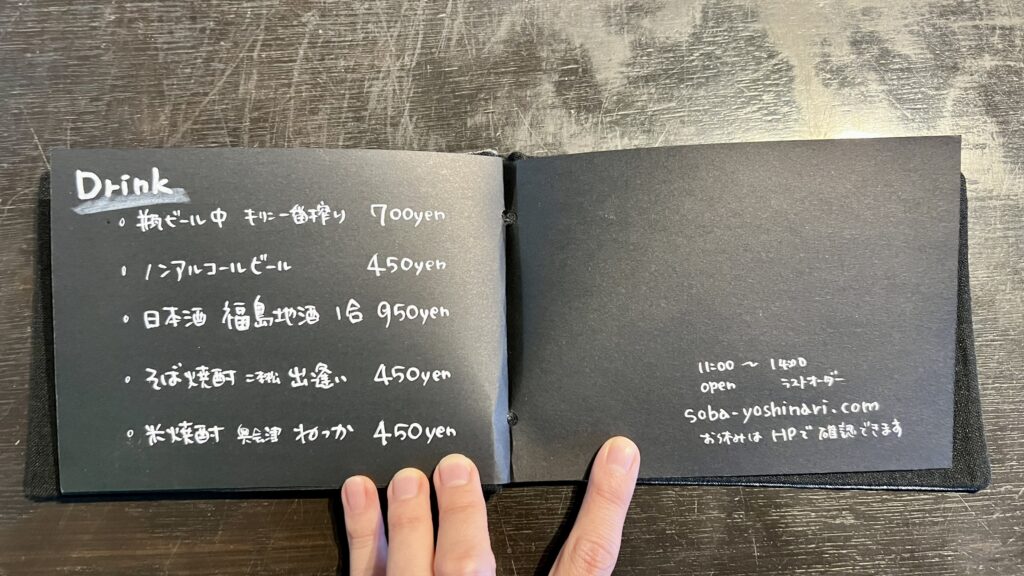 Drink
・瓶ビール中 キリン一番搾り 700yen
・ノンアルコールビール 450yen
・日本酒 福島地酒 1合 950yen
・そば焼酎 二本松 出逢い 450yen
・米焼酎 奥会津 ねっか 450yen
11:00 〜 14:00
open ラストオーダー
soba-yoshinari.com
お休みは HPで確認できます